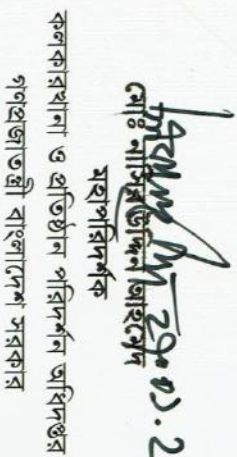 ২৭.০১.২
মোঃ নাসির উদ্দিন আহমেদ
মহাপরিদর্শক
কলকারখানা ও প্রতিষ্ঠান পরিদর্শন অধিদপ্তর
গণপ্রজাতন্ত্রী বাংলাদেশ সরকার